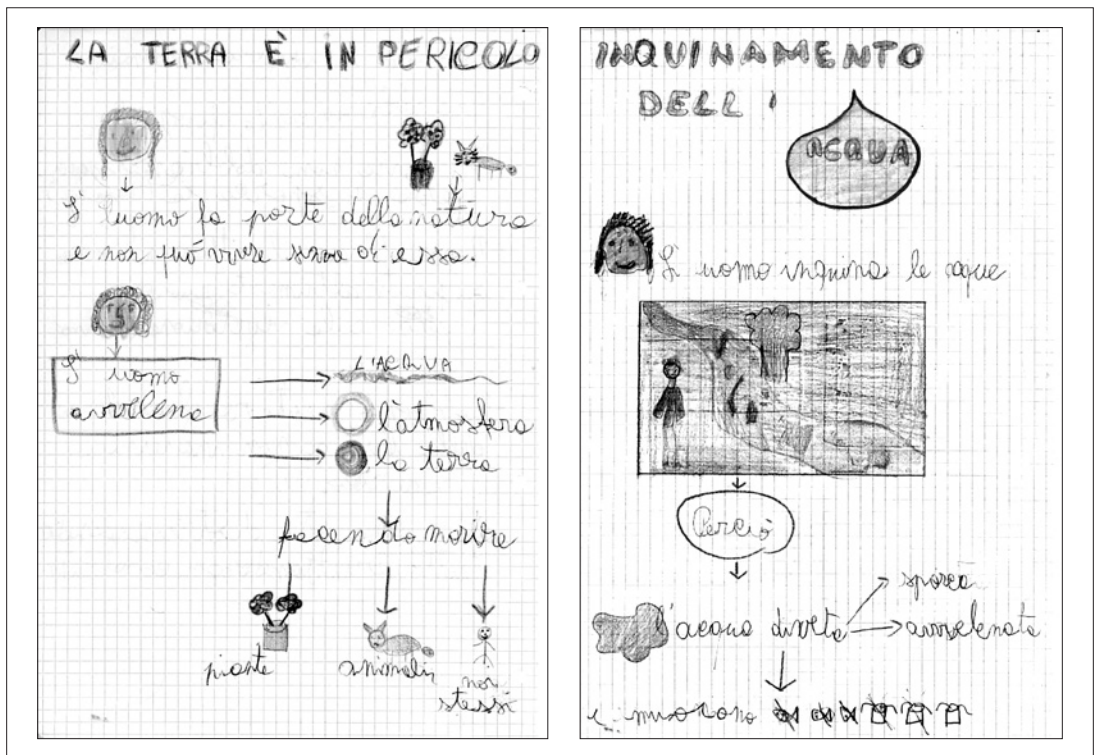 LA TERRA È IN PERICOLO
L' uomo fa parte della natura
e non può vivere senza di essa.
L' uomo
avvelena
L'ACQUA
l'atmosfera
la terra
facendo morire
piante
animali
noi
stessi
INQUINAMENTO
DELL'
ACQUA
L' uomo inquina le acque
Perciò
l'acqua diveta
sporca
avvelenata
e muoiono